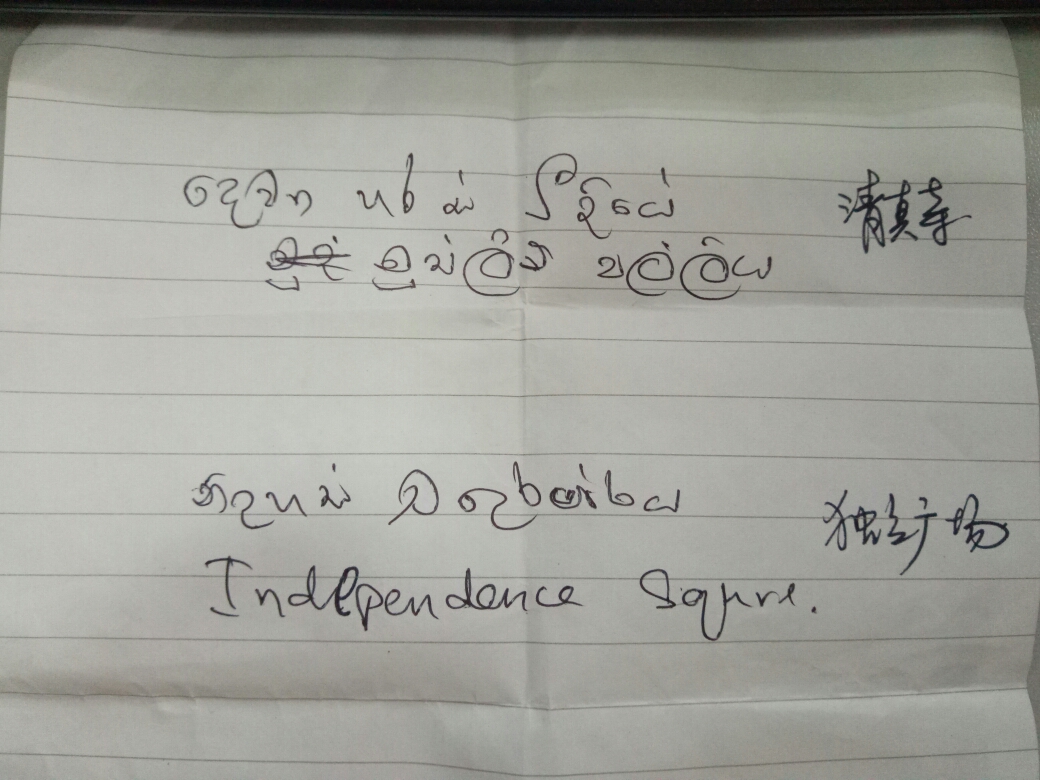 දෙවන හරස් වීදියේ 清真寺
මුස්ලිම් පල්ලිය
නිදහස් චතුරශ්‍රය 独立广场
Independence Squre.